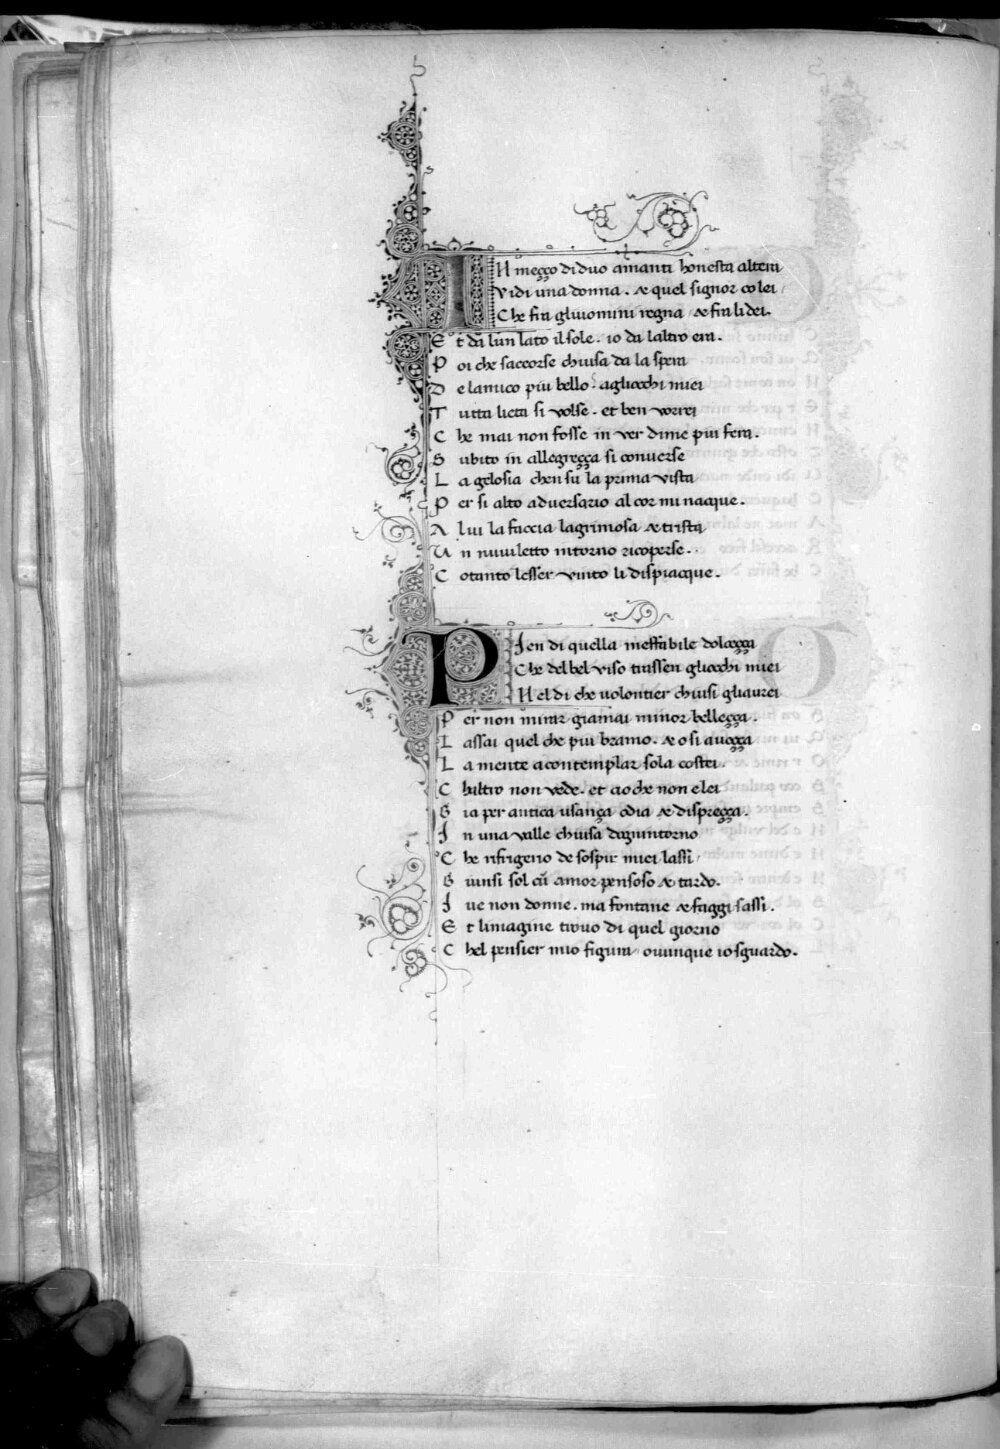 IN meçço di duo amanti honesta altera
Vidi una donna . & quel signor co lei /
Che fra gluiomini regna / & fra li dei .
Et da lun lato il sole . io da laltro era .
Poi che saccorse chiusa da la spera
De lamico piu bello . agliocchi miei
Tutta lieta si volse . et ben vorrei
Che mai non fosse in ver di me piu fera .
Subito in allegreçça si converse
La gelosia chen su la prima vista
Per si alto adversario al cor mi nacque .
A lui la faccia lagrimosa & trista
Un nuviletto intorno ricoperse .
Cotanto lesser vinto li dispiacque .
PIen di quella ineffabile dolceçça
Che del bel viso trassen gliocchi miei
Nel di che volontier chiusi gliavrei
Per non mirar giamai minor belleçça .
Lassai quel che piu bramo . & o si aveçça
La mente a contemplar sola costei .
Chaltro non vede . et cio che non e lei
Gia per antica usança odia & dispreçça .
In una valle chiusa dogni intorno
Che rifrigerio de sospir miei lassi /
Giunsi sol cū amor pensoso & tardo .
Ive non donne . ma fontane & faggi / sassi .
Et limagine trovo di quel giorno
Chel pensier mio figura ovunque io sguardo .